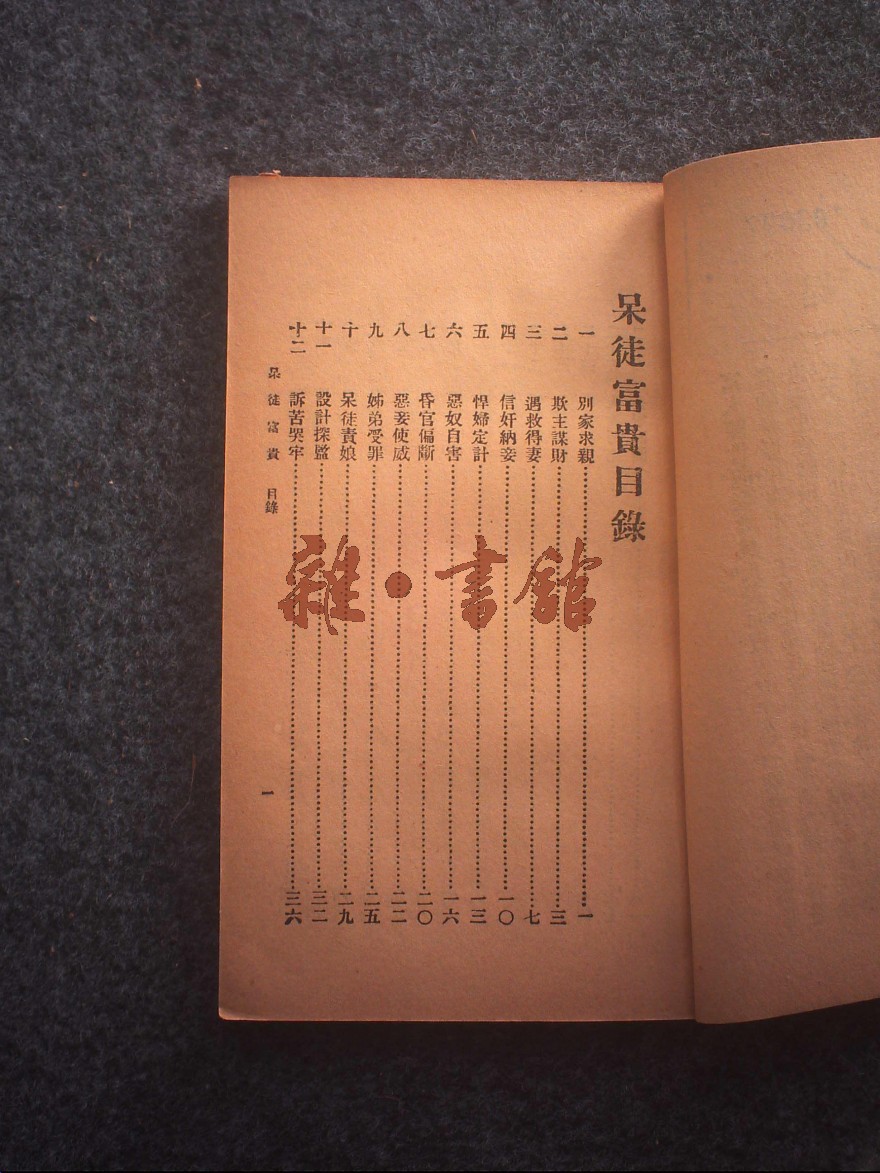 呆徒富貴目錄
一 別家求親………一
二 欺主謀財………三
三 遇救得妻………七
四 信奸納妾………一〇
五 悍婦定計………一三
六 惡奴自害………一六
七 昏官偏斷………二〇
八 惡妾使威………二二
九 姊弟受罪………二五
十 呆徒責娘………二九
十一 設計探監………三二
十二 訴苦哭牢………三六
呆徒富貴 目錄 一
雜·書館